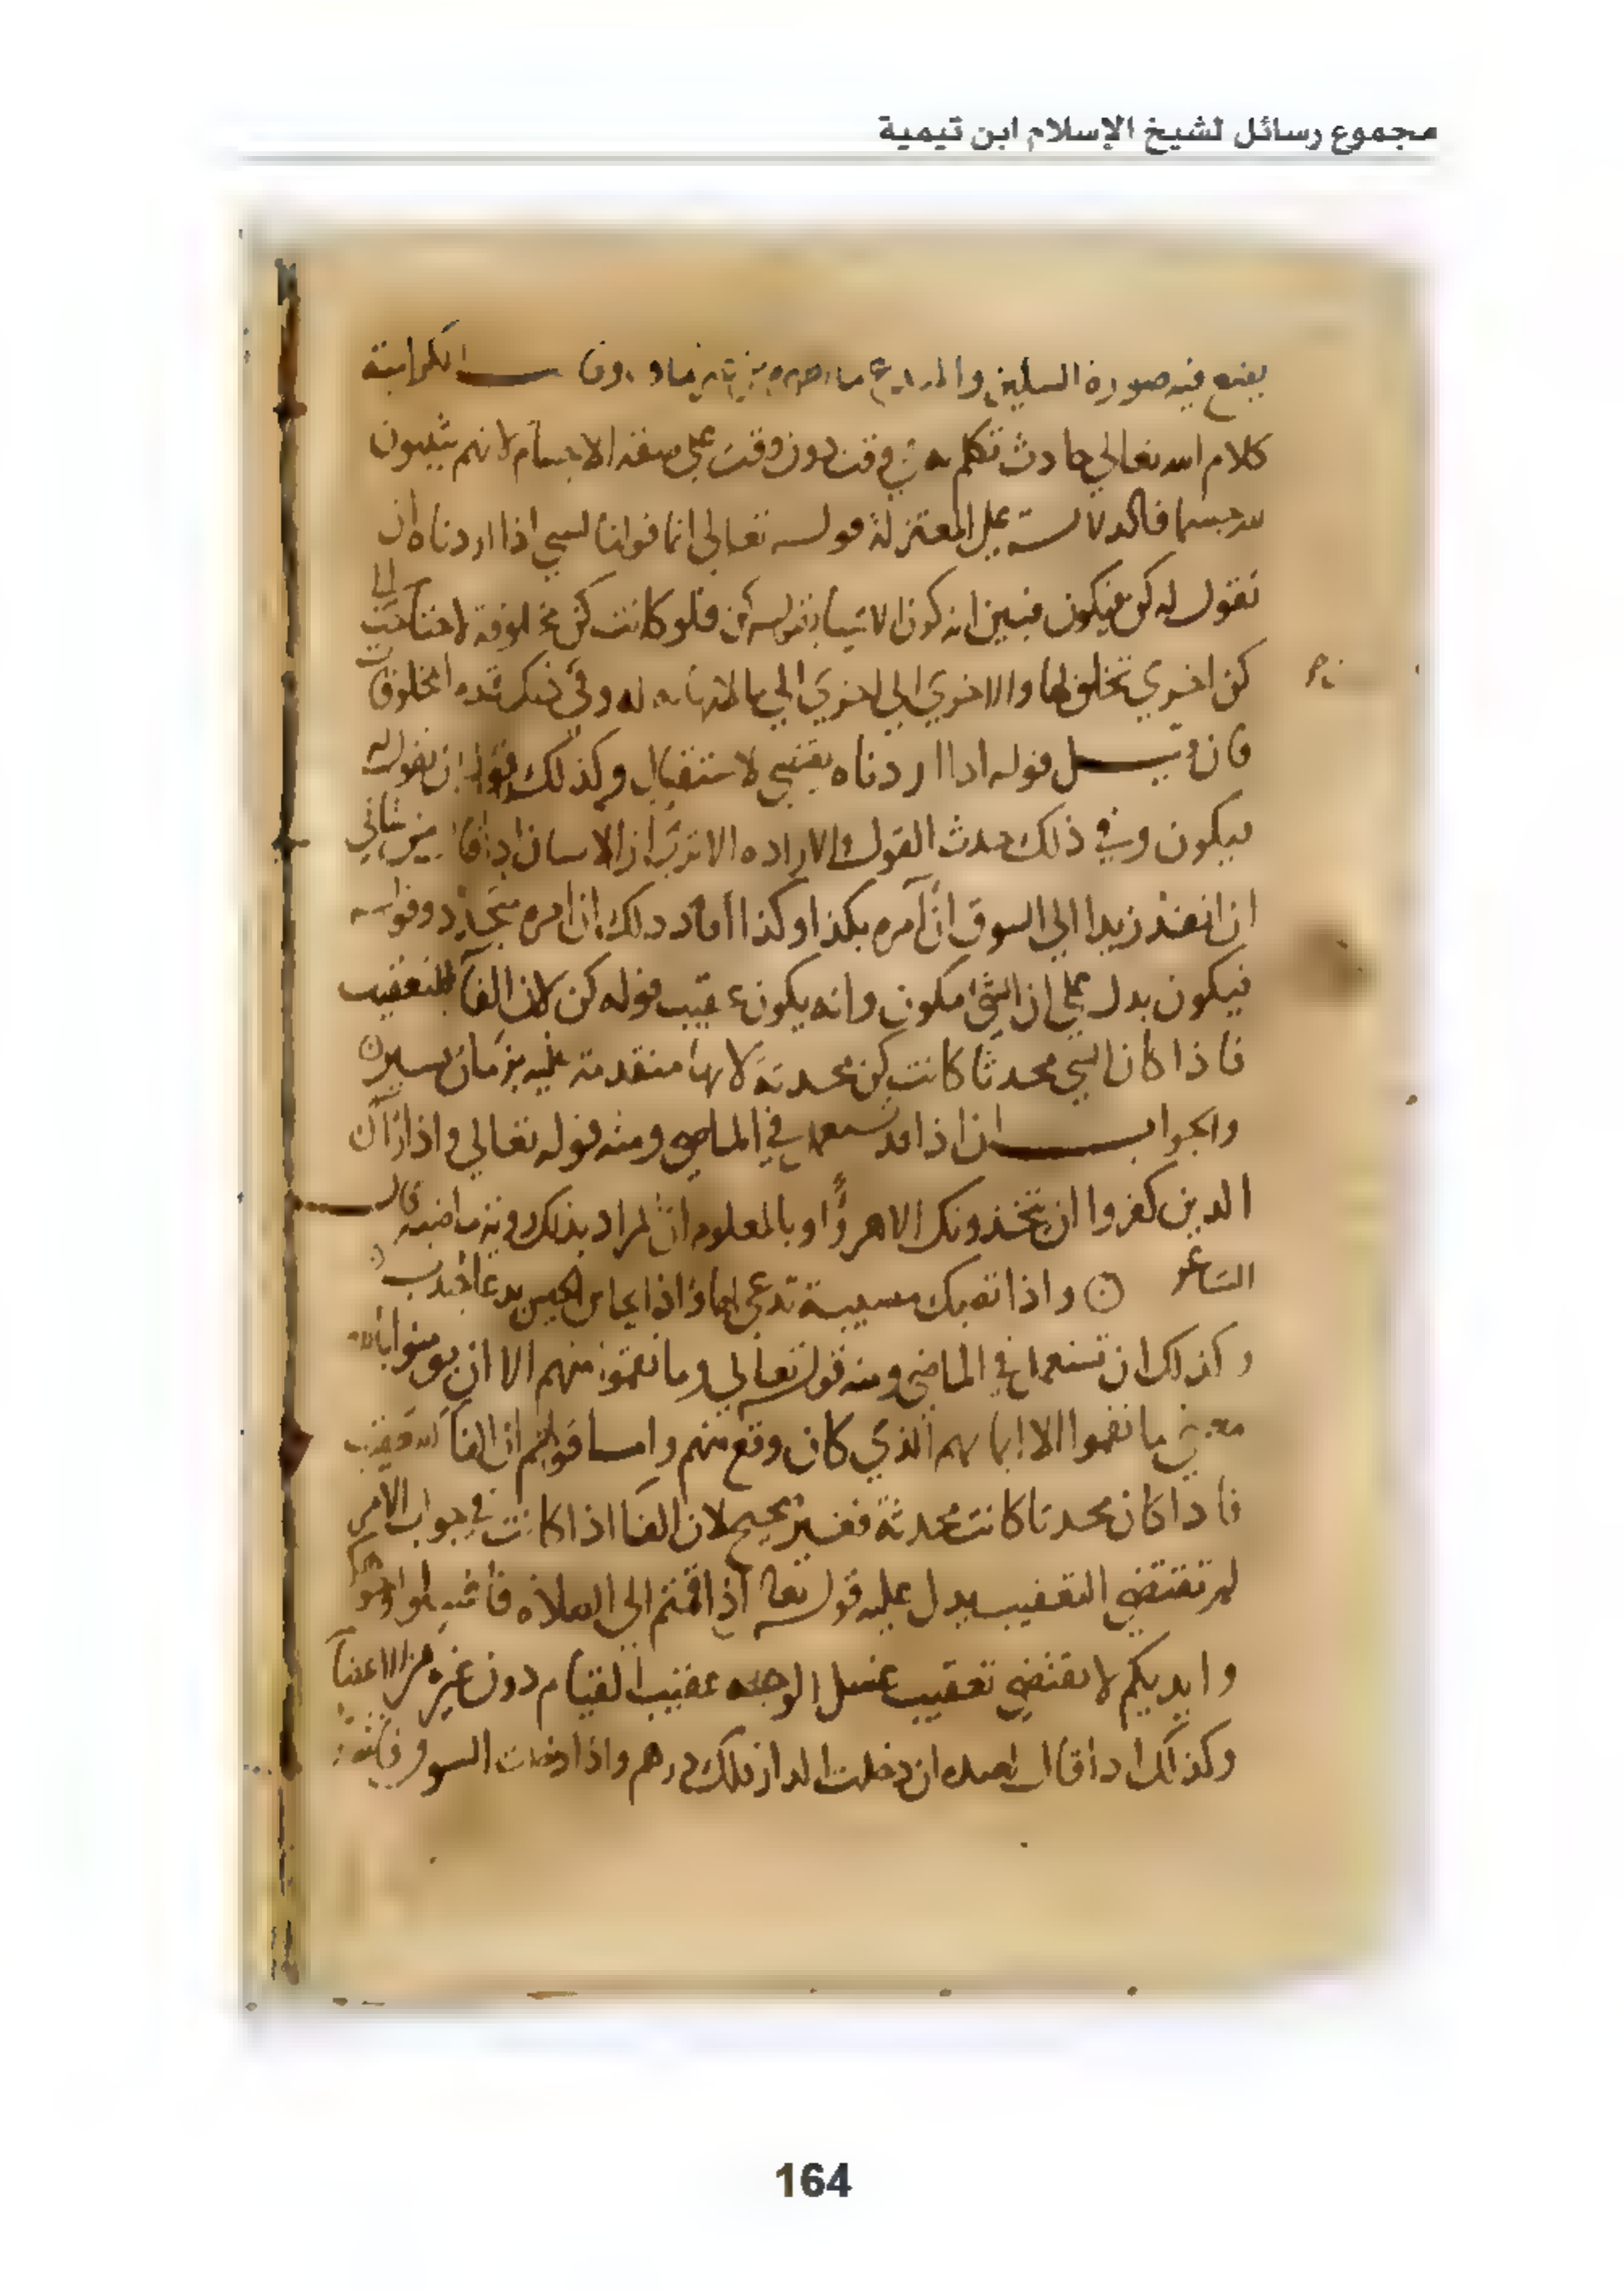 مجموع رسائل لشيخ الإسلام ابن تيمية
فيه صورة
كلام الله تعالى حادث تكلم به في وقت دون وقت على صفة الاجسام لانهم يثبتون
لله جسما فالدلالة على المعتزلة قوله تعالى انما قولنا لشي اذا اردناه ان
نقول له كن فيكون فبين انه كون الاشيا بقوله كن فلو كانت كن مخلوقة لاحتاجت الى
كن اخرى تخلق بها والاخرى الى اخرى الى ما لا نهاية له وفي ذلك المخلوقات
فان قيل قوله اذا اردناه يقتضي الاستقبال وكذلك قوله ان نقول له
فيكون وفي ذلك حدث القول والاراده الا ترى ان الانسان اذا قال متى
ان انفذ زيدا الى السوق ان آمره بكذا وكذا افاد ذلك ان امره متجدد وقوله
فيكون يدل على ان الشي مكون وانه يكون عقيب قوله كن لان الفآ للتعقيب
فاذا كان الشي محدثا كانت كن محدثة لانها متقدمة عليه بزمان يسير
والجواب ان اذا قد تستعمل في الماضي ومنه قوله تعالى واذا رآك
الذين كفروا ان يتخذونك الا هزؤا وبالمعلوم ان المراد بذلك رؤية ماضية قال
الشاعر واذا تدعى لها واذا يحاس الحيس يدعا جندب
وكذلك ان تستعمل في الماضي ومنه قوله تعالى وما نقموا منهم الا ان يومنوا بالله
معنى ما نقموا الا ايمانهم الذي كان وقع منهم واما قولهم ان الفآ للتعقيب
فاذا كان محدثا كانت محدثة فغير صحيح لان الفآ اذا كانت في جواب الامر
لم تقتضي التعقيب يدل عليه قوله تعالى اذا قمتم الى الصلاة فاغسلوا وجوهكم
وايديكم لا يقتضي تعقيب غسل الوجه عقيب القيام دون غيره من الاعضآ
وكذلك اذا قال لعبده ان دخلت الدار فلك درهم واذا دخلت السوق
164